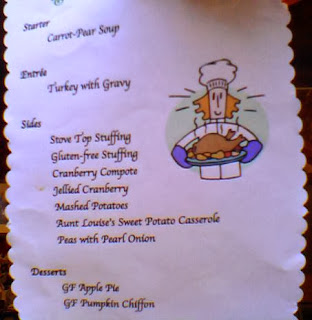 Starter
Carrot-Pear Soup
Entrée
Turkey with Gravy
Sides
Stove Top Stuffing
Gluten-free Stuffing
Cranberry Compote
Jellied Cranberry
Mashed Potatoes
Aunt Louise's Sweet Potato Casserole
Peas with Pearl Onion
Desserts
GF Apple Pie
GF Pumpkin Chiffon